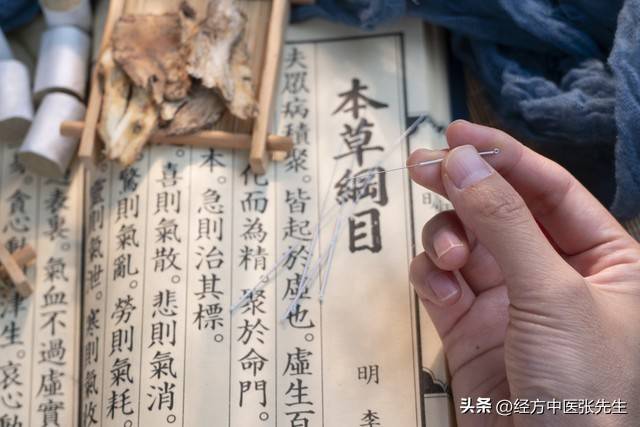 本草綱目
明 李
夫眾病積聚。皆起於虛也。虛生百
化而為精。聚於命門。
本。急則治其標。
喜則氣散。悲則氣消。
驚則氣亂。勞則氣耗。
則氣世。寒則氣收
表裏。氣血不過虛實
貪心動
津生。哀心動
头条 @经方中医张先生